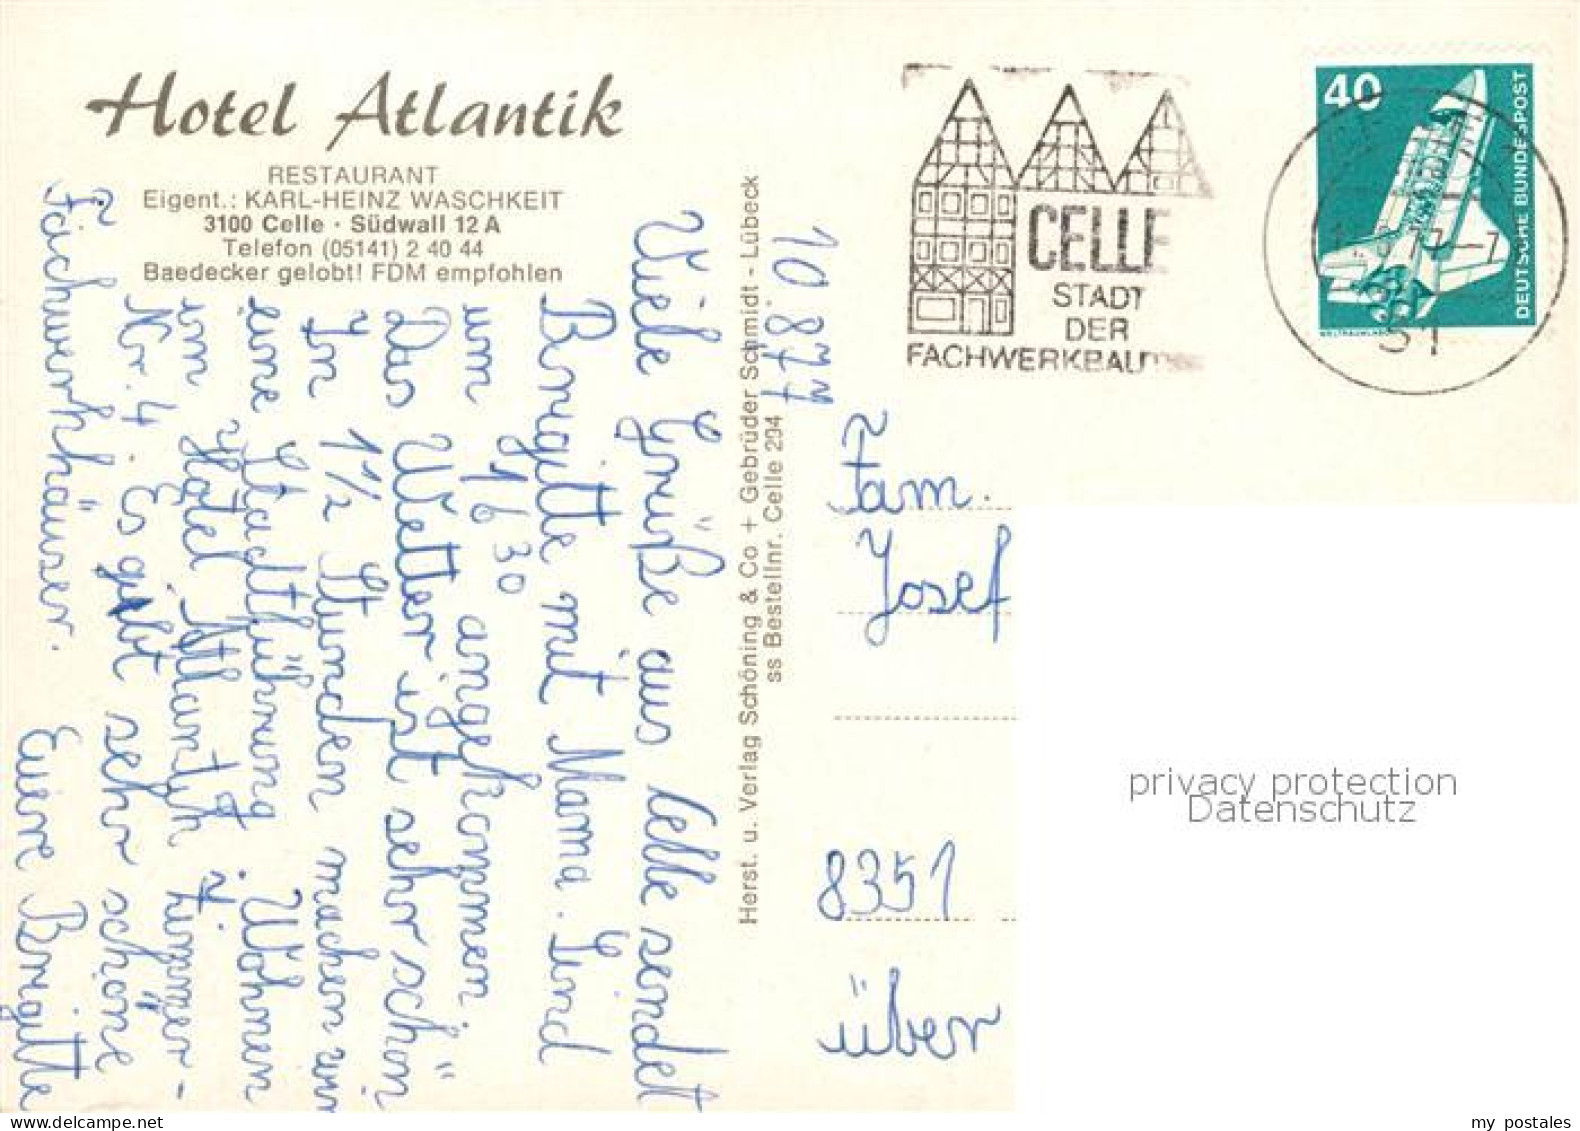 Hotel Atlantik
RESTAURANT
Eigent.: KARL-HEINZ WASCHKEIT
3100 Celle · Südwall 12 A
Telefon (05141) 2 40 44
Baedecker gelobt! FDM empfohlen
10 8 77
Viele Grüße aus Celle sendet
Brigitte mit Mama. Sind
um 16 30 angekommen.
Das Wetter ist sehr schön
In 1 1/2 Stunden machen wir
eine Stadtführung. Wohnen
im Hotel Atlantik Zimmer-
Nr. 4. Es gibt sehr schöne
Fachwerkhäuser.
Eure Brigitte
Herst. u. Verlag Schöning & Co + Gebrüder Schmidt - Lübeck
ss Bestellnr. Celle 294
CELLE
STADT
DER
FACHWERKBAU
40
DEUTSCHE BUNDESPOST
31
Fam.
Josef
8351
über
privacy protection
Datenschutz
www.delcampe.net
my postales